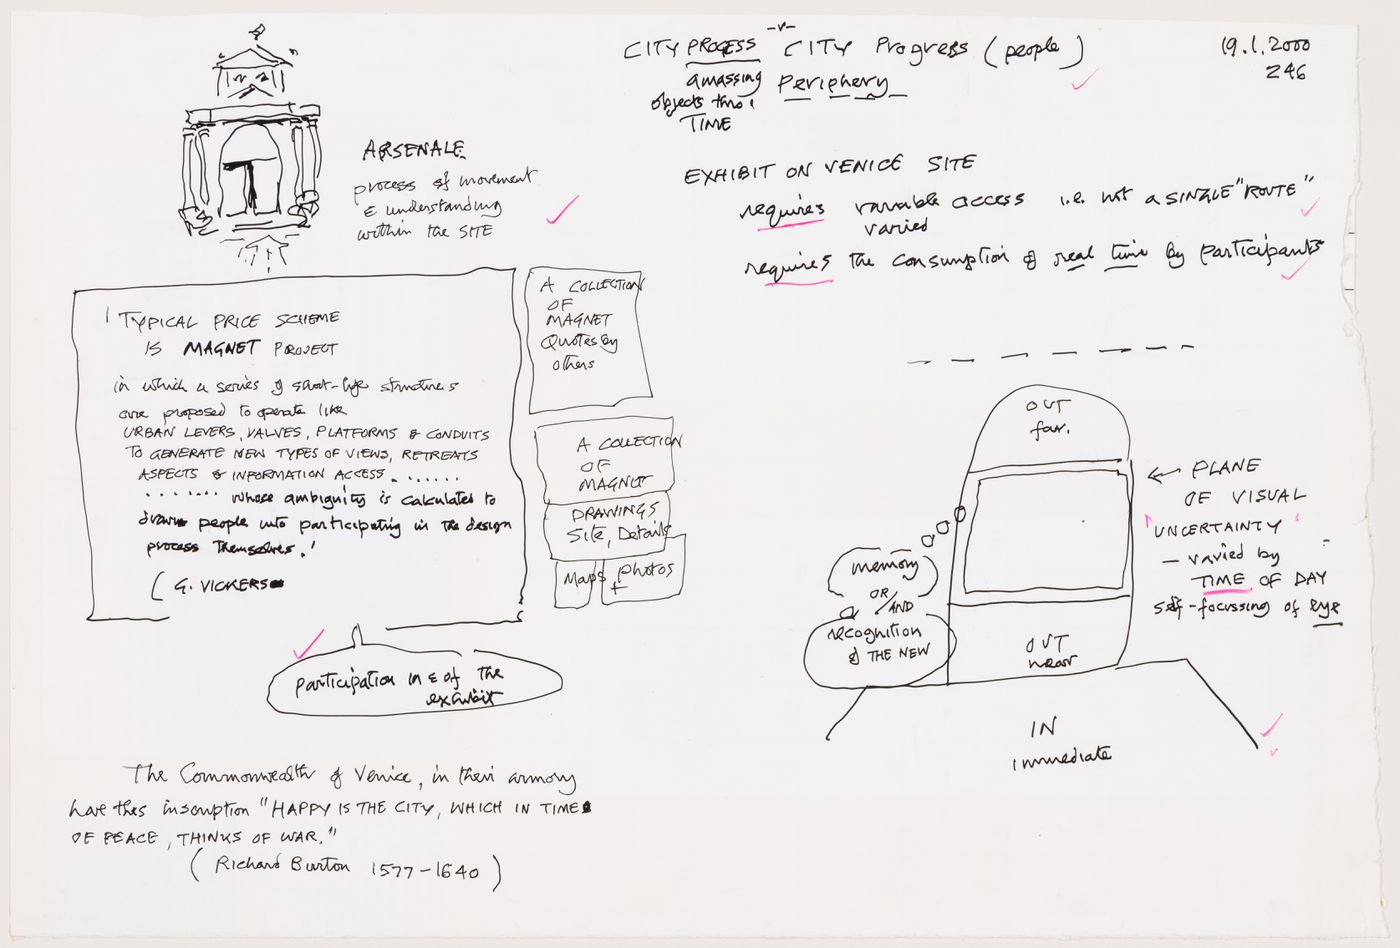 CITY PROCESS -v- CITY Progress (people)
amassing Periphery
objects thro'
TIME
19.1.2000
246
ARSENALE
process of movement
& understanding
within the SITE
EXHIBIT ON VENICE SITE
requires variable access i.e. not a SINGLE "ROUTE"
varied
requires the consumption of real time by participants
'TYPICAL PRICE SCHEME
IS MAGNET PROJECT
in which a series of short-life structures
are proposed to operate like
URBAN LEVERS, VALVES, PLATFORMS & CONDUITS
TO GENERATE NEW TYPES OF VIEWS, RETREATS
ASPECTS & INFORMATION ACCESS.......
....... whose ambiguity is calculated to
draw people into participating in the design
process themselves.'
(G. VICKERS
A COLLECTION
OF
MAGNET
Quotes by
others
A COLLECTION
OF
MAGNET
DRAWINGS
Site, Details
Maps photos
+
participation in & of the
exhibit
OUT
far.
← PLANE
OF VISUAL
"UNCERTAINTY"
- varied by
TIME OF DAY
self-focussing of eye
memory
OR/AND
recognition
of THE NEW
OUT
near
IN
immediate
The Commonwealth of Venice, in their armory
have this inscription "HAPPY IS THE CITY, WHICH IN TIME
OF PEACE, THINKS OF WAR."
(Richard Burton 1577-1640)